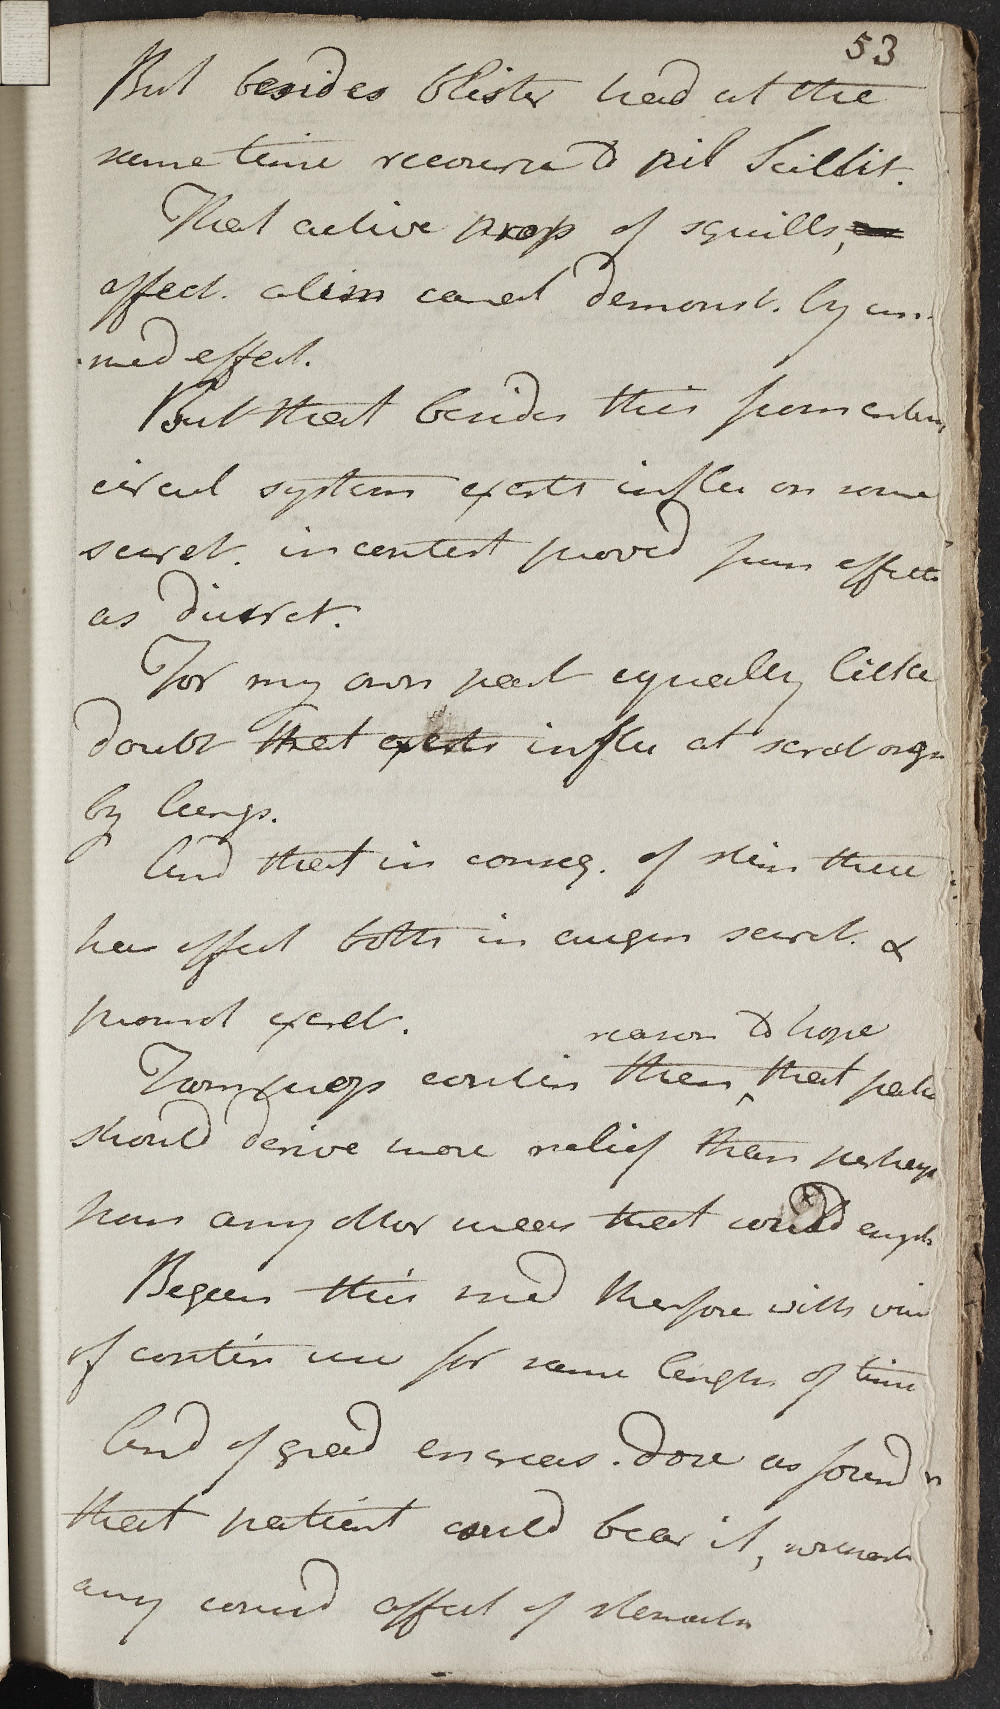 53
But besides blister had at the
same time recourse to pil Scillit.
That active prop of squills,
affect. alim canal demonst. by
med effect.
But that besides this from
circul system exerts influ on some
secret. incontest proved from effects
as diuret.
For my own part equally little
doubt that exerts influ at secret orga
by lungs.
And that in conseq. of stim there
has effect both in augm secret. &
promot excret.
reason to hope
From prep contin then ‸ that patie
should derive more relief than perhaps
from any other mean that could empl
Began this med therefore with vie
of contin use for some length of time
And of grad encreas. dose as found
that patient could bear it, without
any consid affect of stomach